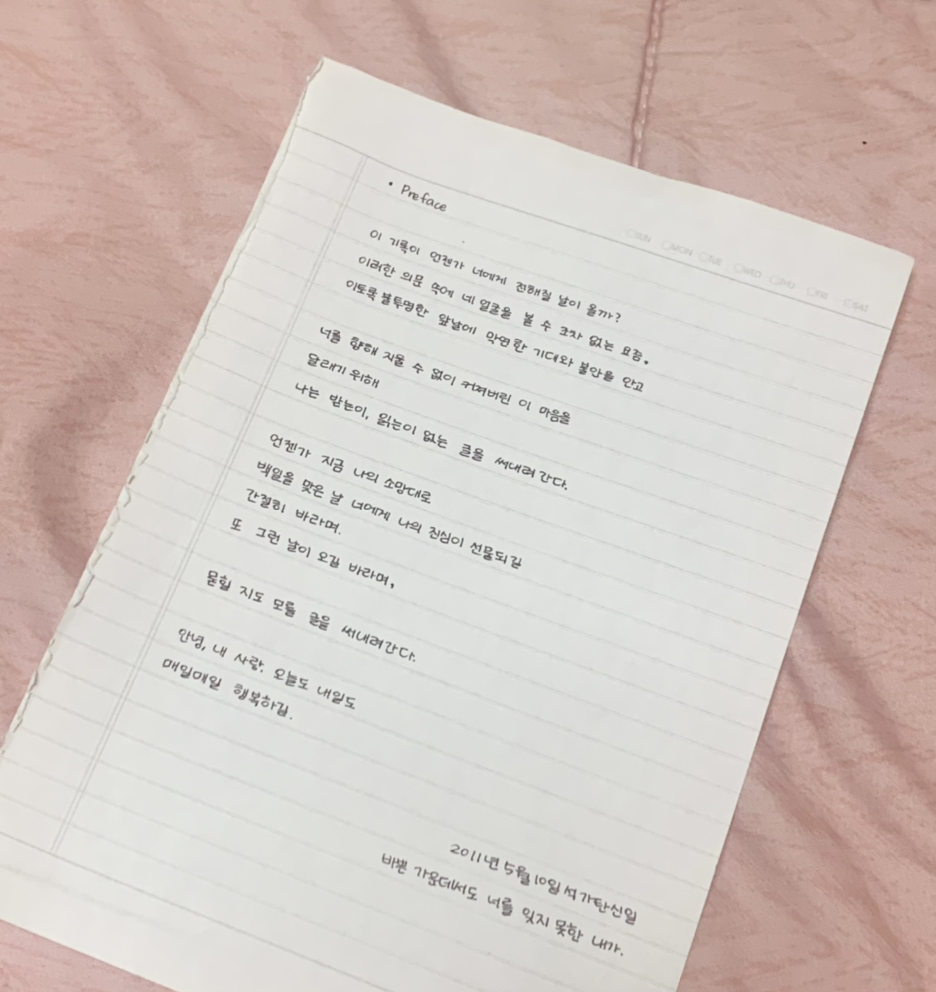 • Preface
SUN MON TUE WED THU FRI SAT
이 기록이 언젠가 너에게 전해질 날이 올까?
이러한 의문 속에 네 얼굴을 볼 수 조차 없는 요즘.
이토록 불투명한 앞날에 막연한 기대와 불안을 안고
너를 향해 지울 수 없이 커져버린 이 마음을
달래기 위해
나는 받는이, 읽는이 없는 글을 써내려 간다.
언젠가 지금 나의 소망대로
백일을 맞은 날 너에게 나의 진심이 선물되길
간절히 바라며.
또 그런 날이 오길 바라며,
묻힐 지도 모를 글을 써내려간다.
안녕, 내 사랑. 오늘도 내일도
매일매일 행복하길.
2011년 5월 10일 석가탄신일
바쁜 가운데서도 너를 잊지 못한 내가.